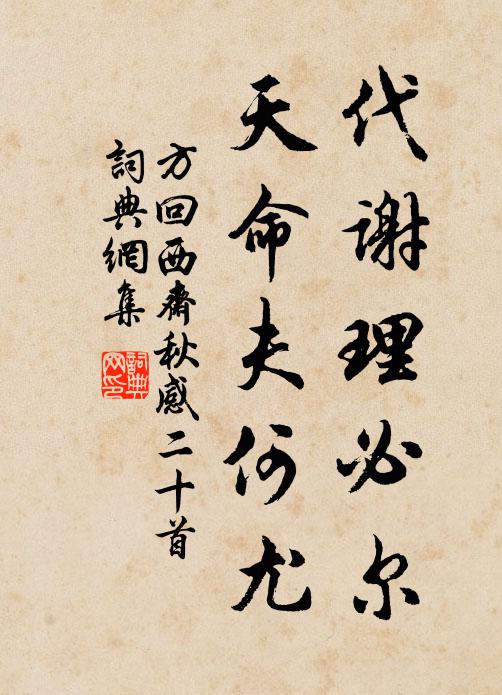 代谢理必尔
天命夫何尤
方回西齋秋感二十首
詞典網集
詞典網印